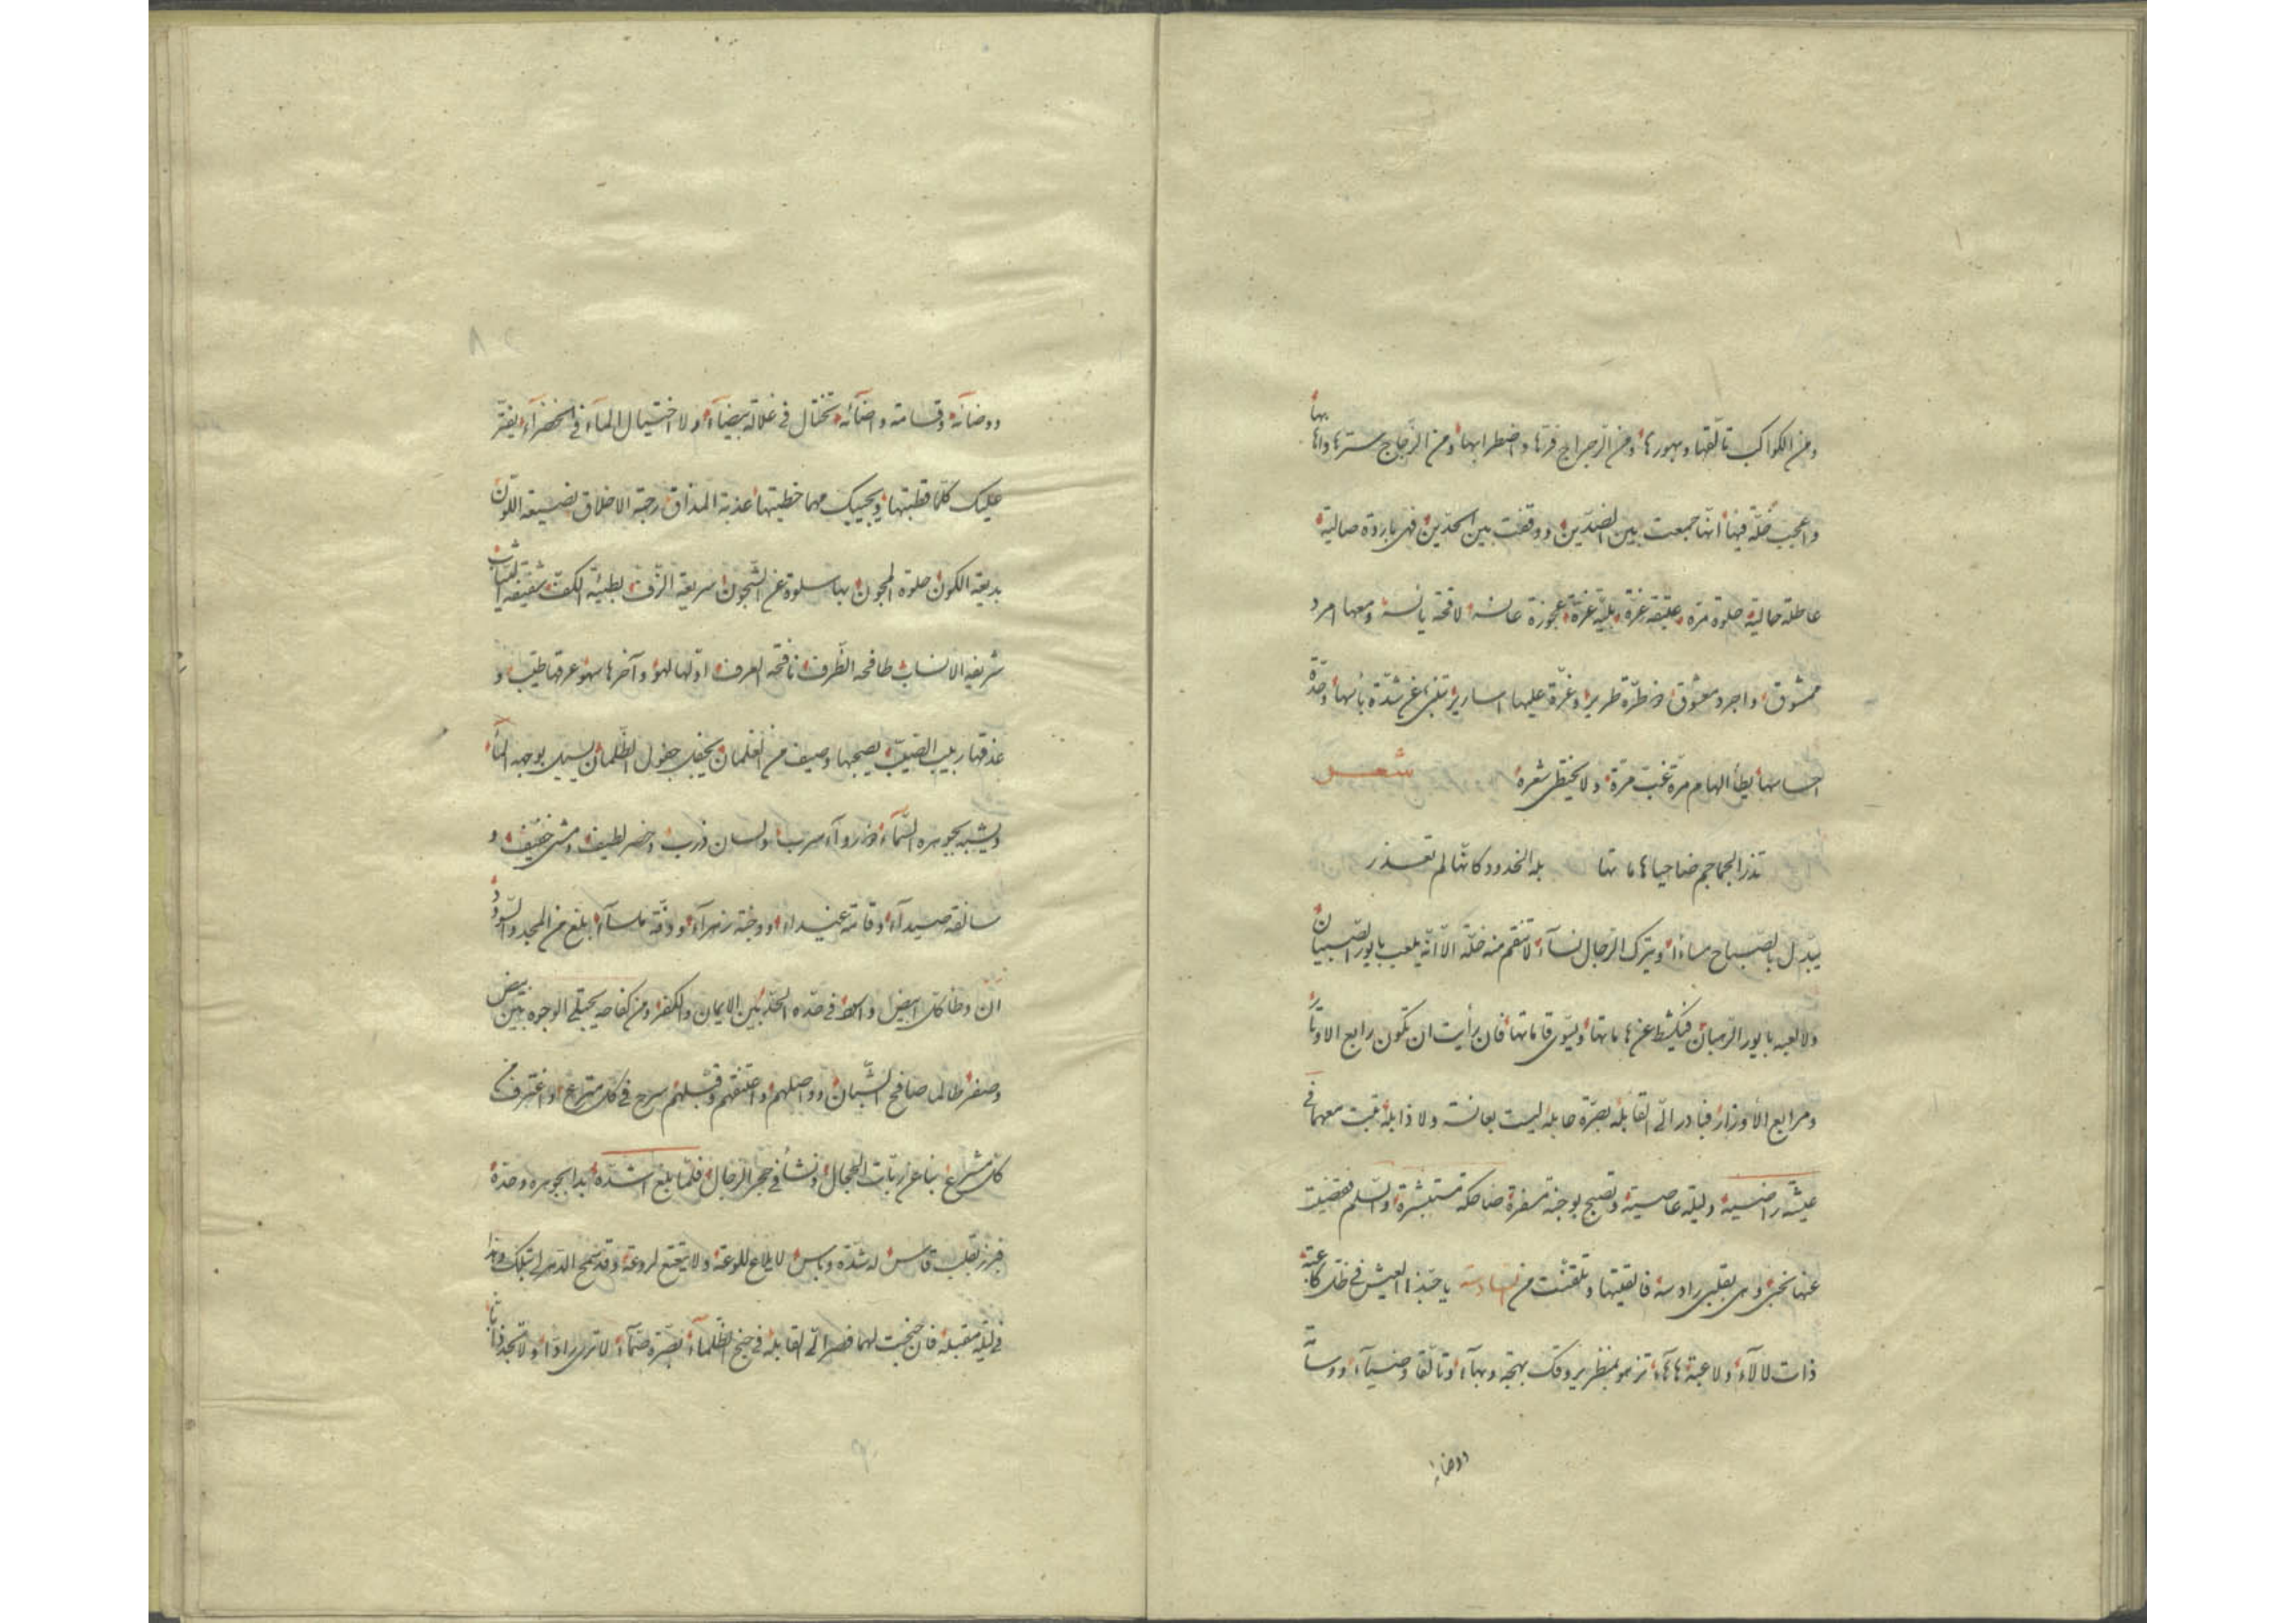 ومن الكواكب تألقها وبهورها ومن الزجراج قرتها واضطرابها ومن الزجاج سترها وا بها
واعجب خلة فيها انها جمعت بين الضدين ووقفت بين الحدين فهى باردة صالية
عاطلة حالية حلوة مرة عتيقة غرة بلية غرة عجوزة عانسة لاقحة يائسة ومعها امرد
ممشوق واجرد معشوق وطرة طرير وغرة عليها اسارير تنبئ عن شدة باسها وحدة
احساسها يطأ الهام مرة غب مرة ولا يخطى شعرة شعر
تذر الجماجم ضاحيا هاماتها بله الخدود كانها لم تعذر
يبدل بالصباح مساءا ويترك الرجال نساء لا تنقم منه خلة الا انه يلعب بايور الصبيان
ولا لعبه بايور الرهبان فيكشط عن هاماتها ويسوى قاماتها فان رأيت ان تكون رابع الاوتار
ومرابع الاوزار فبادر الى القابلة بصرة حابلة ليست بعانسة ولا ذابلة تبت معهما فى
عيشة راضية وليلة عاصية وتصبح بوجنة مسفرة ضاحكة مستبشرة والسلم فقضيت
عنها نحبى وبى بقلبى رادسة فالقيتها وتلقفت من السادسة يا حبذا العيش فى ظل كاعبة
ذات لالآء ولاعبة هآهآء تزهو بمنظر يروقك بهجة وبهآء وتألقا وضيآء ووسامة
ووضاءة
ووضآئة وقسامة واضآئة تختال فى غلالة بيضآء ولا اختيال المآء فى الخضرآء يفتر
عليك كلما قطبتها ويجيبك مهما خطبتها عذبة المذاق رحبة الاخلاق نصيعة اللون
بديعة الكون حلوة المجون بها سلوة عن الشجون سريعة الزف بطيئة الكف شفيفة الثياب
شريفة الانساب طافحة الظرف نافحة العرف اولها لهو وآخرها سهو عرقها طيب و
عذقها ربيب الصيب يصحبها وصيف من الغلمان يجفل جفول الظلمان يسيل بوجهه المآء
ويشبه بجوهره السمآء ذو روآء سرب ولسان ذرب وخصر لطيف ومشى خفيف و
سالفة صيدآء وقامة غيداء ووجنة زهرآء ودقة ملسآء بلغ من المجد والسودد
ان وطا كل ابيض واسود فى حده الحد بين الايمان والكفر ومن كفاحه يجتلى الوجوه بين بيض
وصفر طالما صافح الشبان وواصلهم واعتنقهم وقبلهم سرح فى كل مترع واغترف من
كل مشرع نبا عن ربات الحجال ونشأ فى حجر الرجال فلما بلغ اشده بدا بجوهره وحدة
فبرز بقلب قاس له شدة وباس لا يلاع للوعة ولا يتعتع لروعة وقد سمح الدهر لى بتلك وهذا
فى ليلة مقبلة فان جنحت لهما فصر الى القابلة فى جنح الظلمآء بصرة صمآء لا ترى رادا ولا تجد ذابا